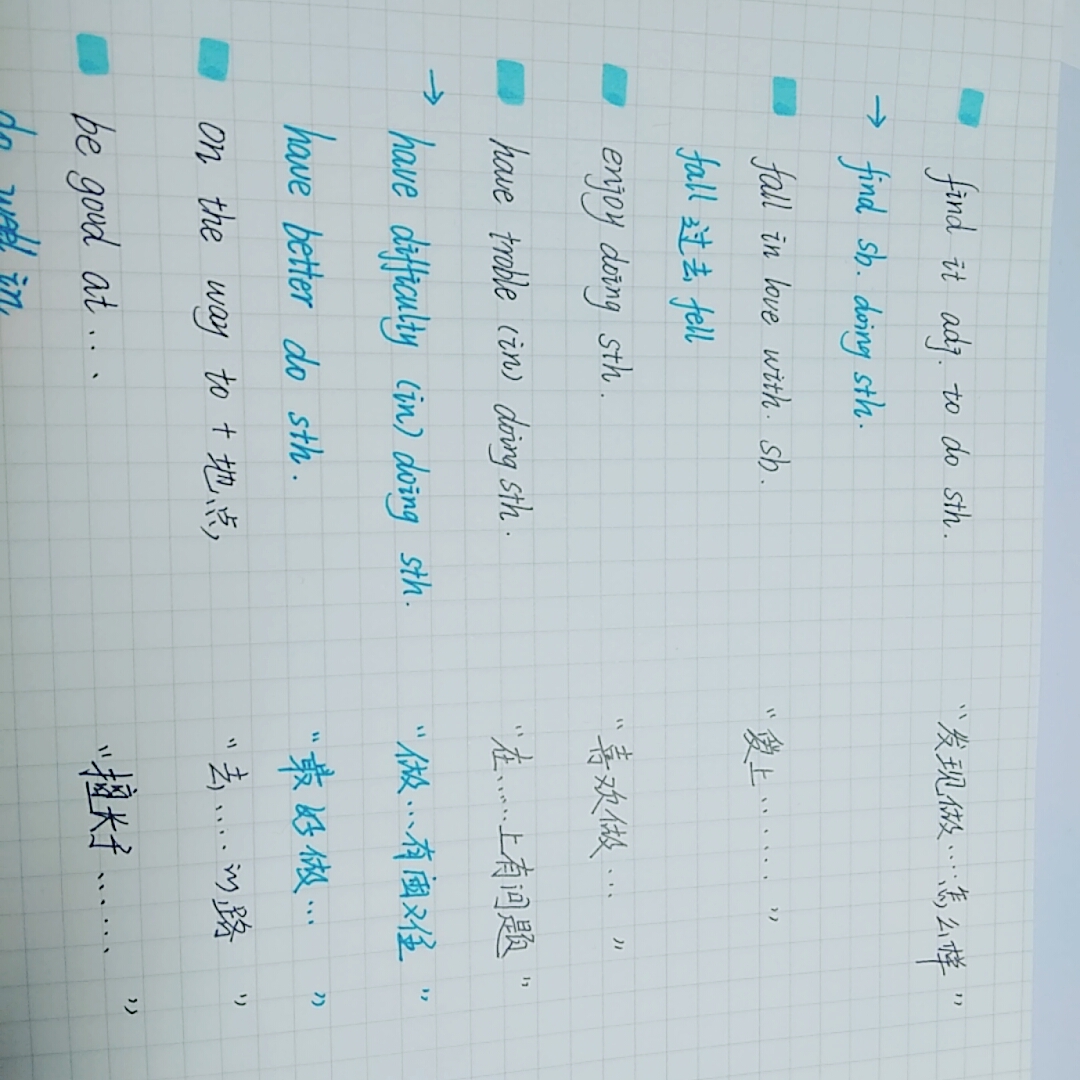 find it adj. to do sth. “发现做……怎么样”
→ find sb. doing sth.
fall in love with. sb. “爱上……”
fall 过去 fell
enjoy doing sth. “喜欢做…”
have troble (in) doing sth. “在……上有问题”
→ have difficulty (in) doing sth. “做…有困难”
have better do sth. “最好做…”
on the way to + 地点, “去……的路”
be good at... “擅长于……”
do well in